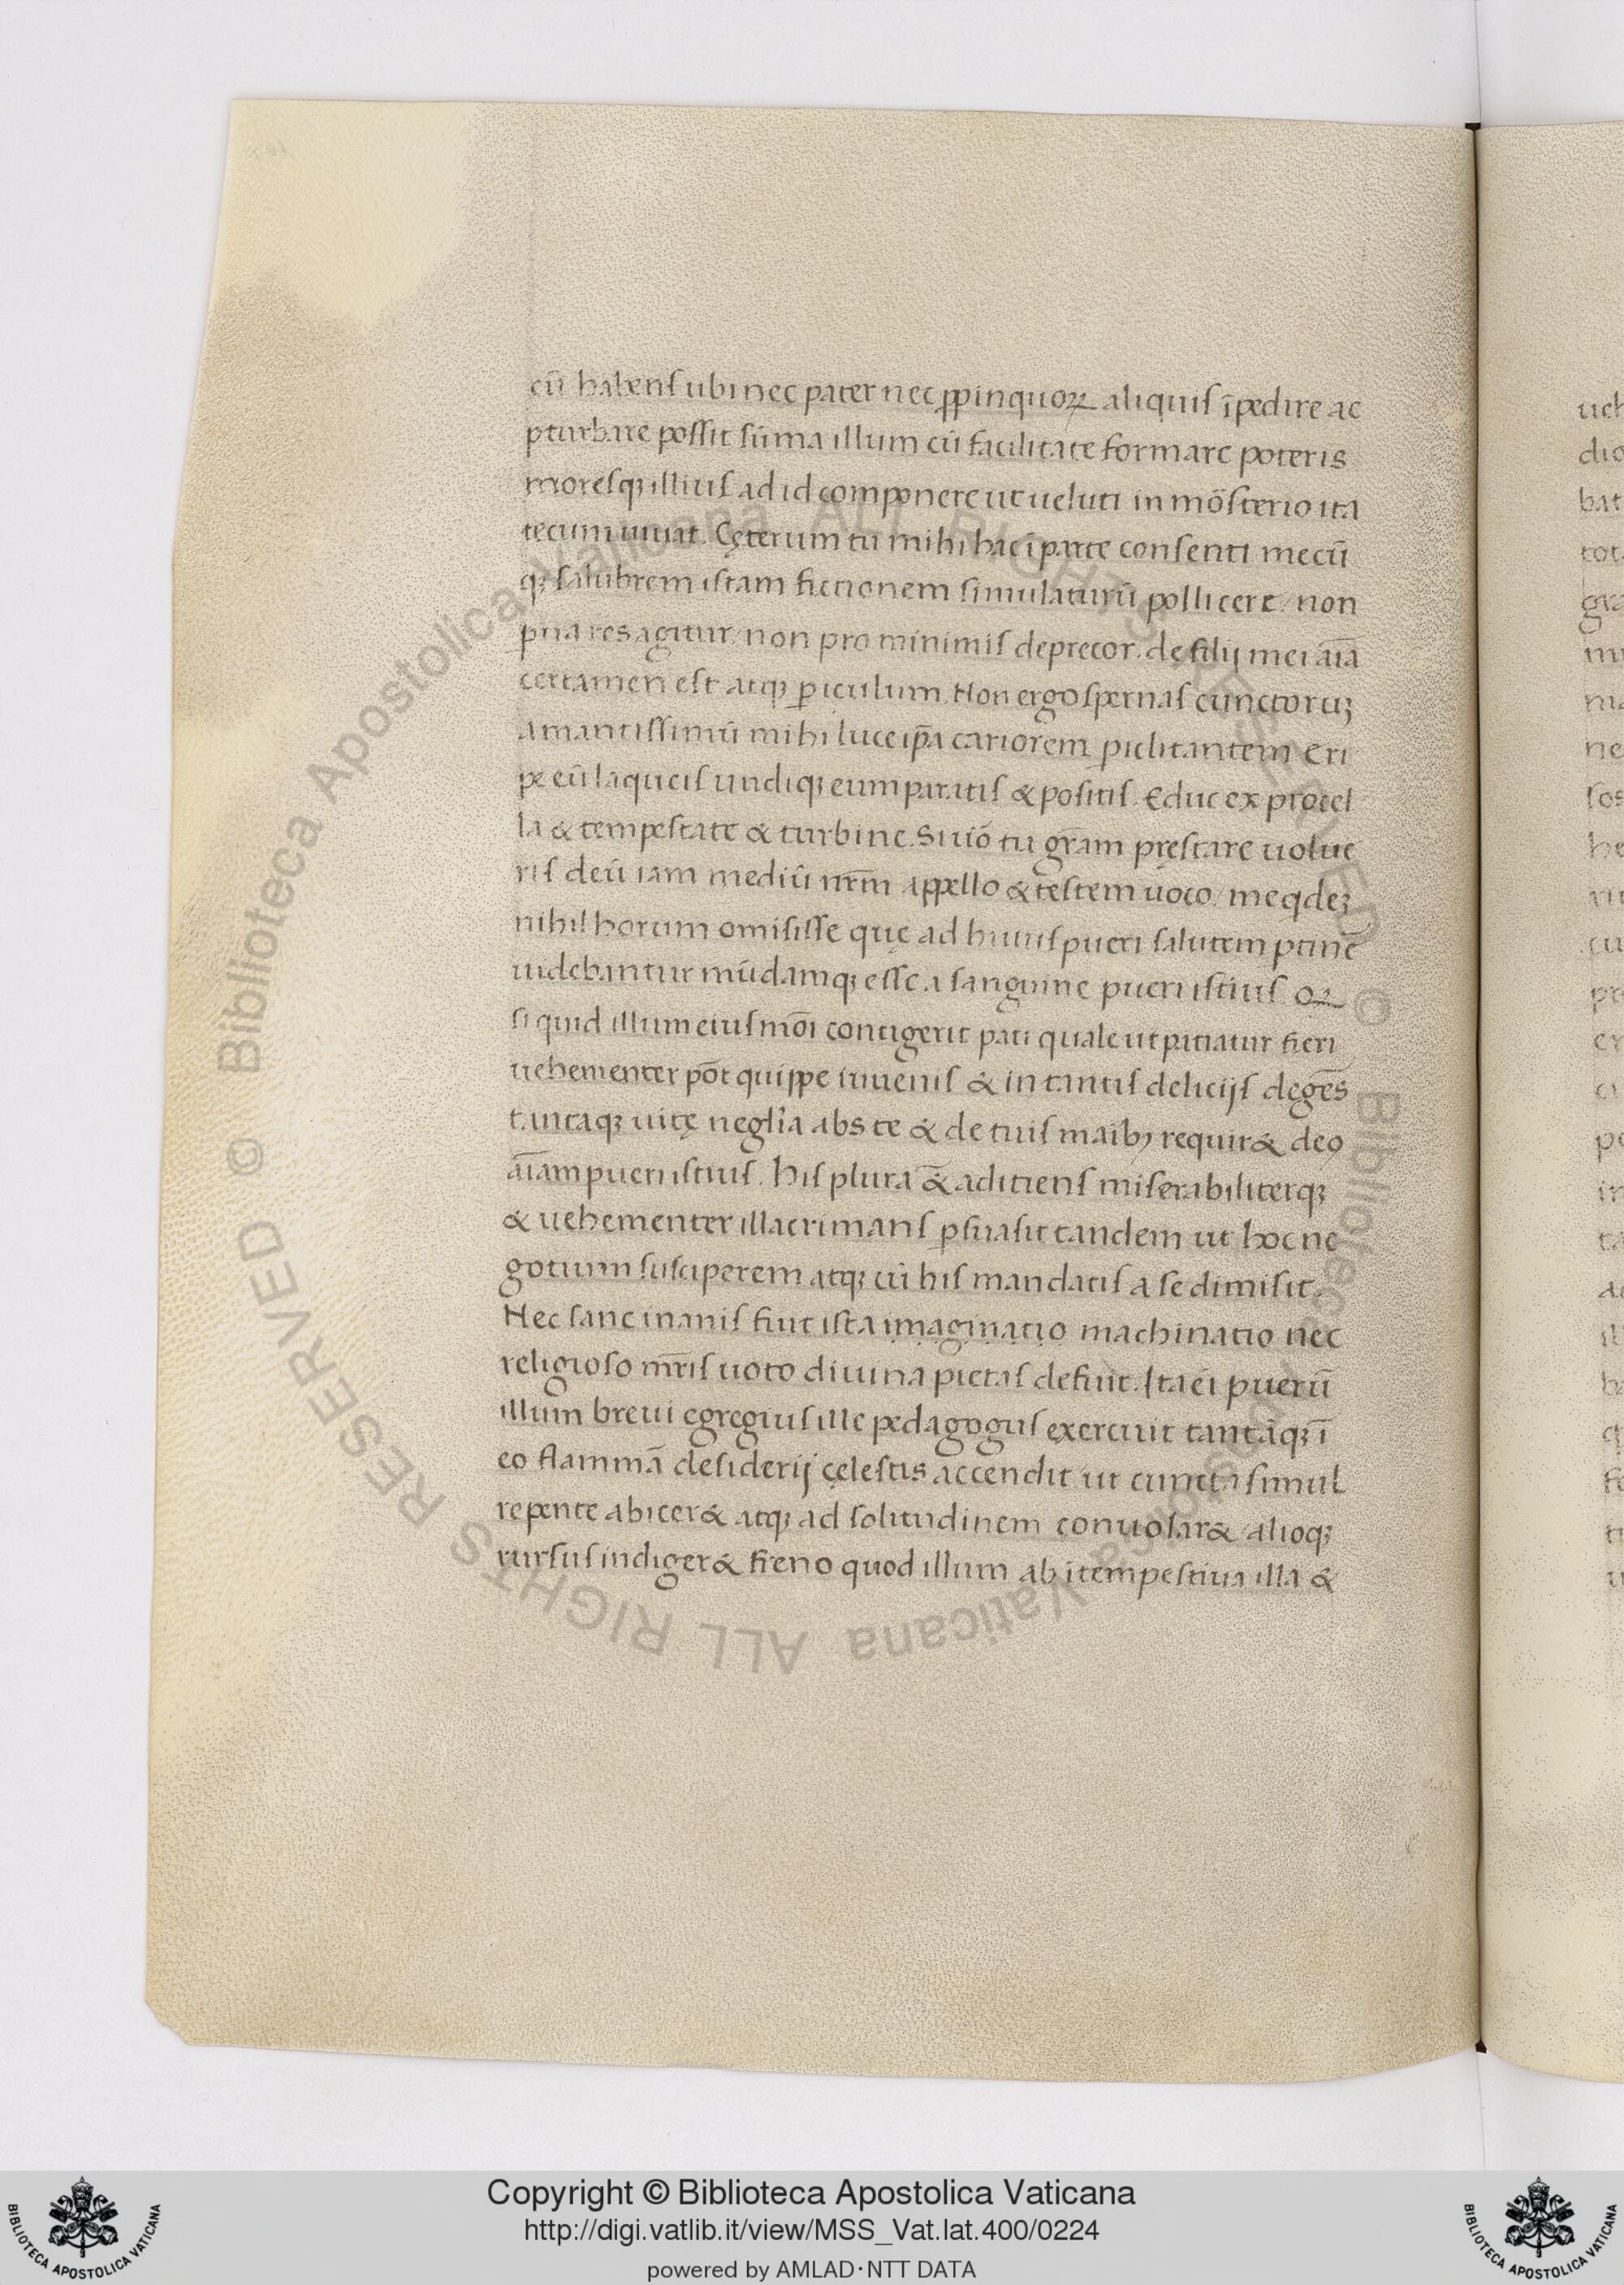 cū habens ubi nec pater nec ꝓpinquoꝝ aliquis īpedire ac
ꝑturbare possit sūma illum cū facilitate formare poteris
moresq; illius ad id componere ut ueluti in mōsterio ita
tecum uiuat. Cęterum tu mihi hac ī parte consenti mecū
q; salubrem istam fictionem simulaturū pollicere / non
res agitur / non pro minimis deprecor. de filij mei aīa
certamen est atq; ꝑiculum. Non ergo spernas cunctoruꝫ
amantissimū mihi luce ip̄a cariorem ꝑiclitantem eri
pe eū laqueis undiq; eum paratis & positis. Educ ex procel
la & tempestate & turbine. Si uīo tu gr̄am pręstare uolue
ris deū iam mediū nr̄m appello & testem uoco / me qdeꝫ
nihil horum omisisse quę ad huius pueri salutem ptine
uidebantur mūdamq; esse a sanguine pueri istius. oꝝ
si quid illum eiusmōi contigerit pati quale ut patiatur fieri
uehementer pōt quippe iuuenis & in tantis delicijs degēs
tantaq; uitę neglīa abs te & de tuis māibꝫ requir& deo
aīam pueri istius. His plura & aditiens miserabiliterq;
& uehementer illacrimans ꝑsuasit tandem ut hoc ne
gotium susciperem atq; cū his mandatis a se dimisit.
Nec sane inanis fuit ista imaginatio machinatio nec
religioso mr̄is uoto diuina pietas defuit. Ita ei puerū
illum breui egregius ille pedagogus exercuit tantāq; ī
eo flammā desiderij cęlestis accendit ut cuncta simul
repente abicer& atq; ad solitudinem conuolar& / alioq;
rursus indiger& freno quod illum ab itempestiua illa &
ueh
dio
bat
tot
gra
ne
he
Copyright © Biblioteca Apostolica Vaticana
http://digi.vatlib.it/view/MSS_Vat.lat.400/0224
powered by AMLAD·NTT DATA
BIBLIOTECA APOSTOLICA VATICANA
BIBLIOTECA APOSTOLICA VATICANA
© Biblioteca Apostolica Vaticana ALL RIGHTS RESERVED © Biblioteca Apostolica Vaticana ALL RIGHTS RESERVED